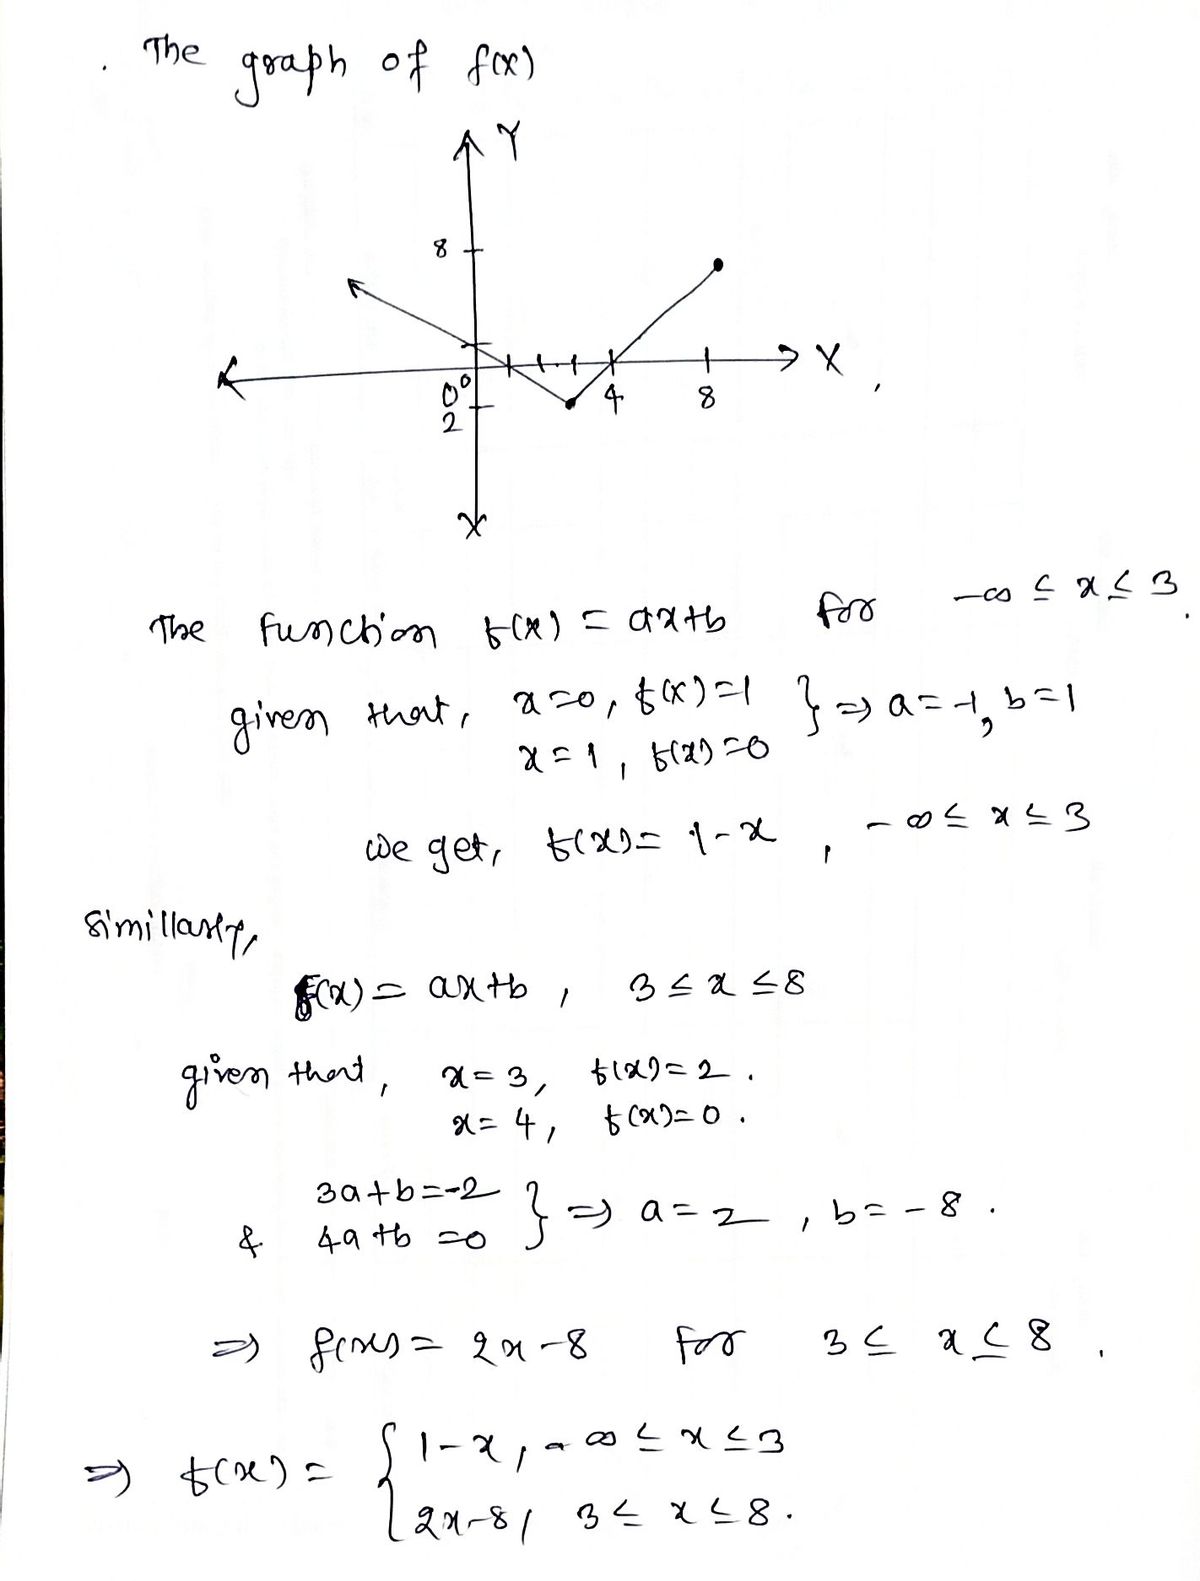 . The graph of f(x)
Y
8
X
0 0
2
4 8
The function f(x) = ax+b for -∞ ≤ x ≤ 3.
given that, x=0, f(x)=1 } ⇒ a=-1, b=1
x=1, f(x)=0
we get, f(x)= 1-x , -∞ ≤ x ≤ 3
Simillarly,
f(x) = ax+b , 3 ≤ x ≤ 8
given that, x=3, f(x)=2.
x=4, f(x)=0.
3a+b=-2 } ⇒ a=2, b=-8.
& 4a+b=0
⇒ f(x)= 2x-8 for 3 ≤ x ≤ 8.
⇒ f(x) = { 1-x, -∞ ≤ x ≤ 3
2x-8, 3 ≤ x ≤ 8.